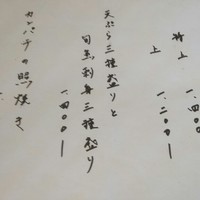 特上 一、四〇〇ー
上 一、二〇〇ー
天ぷら三種盛りと
旬魚刺身三種盛り
一、四〇〇ー
カンパチの照焼き